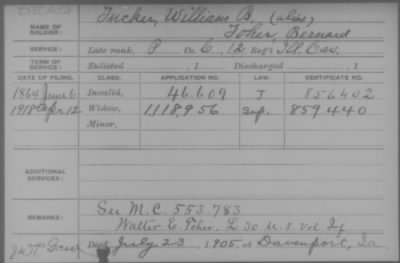 DEAD
NAME OF SOLDIER: Tucker, William B. (alias)
Toher, Bernard
SERVICE: Late rank, P Co. C, 12 Reg't Ill. Cav.
TERM OF SERVICE: Enlisted , 1 Discharged , 1
DATE OF FILING. CLASS. APPLICATION NO. LAW. CERTIFICATE NO.
1864 June 6 Invalid, 46.609 J 856402
1918 Apr 12 Widow, 1,118,956 859440
Minor,
ADDITIONAL SERVICES:
REMARKS: See M.C. 553783
Walter E. Toher. L 30 U.S. Vol Inf
Died July 23, 1905, at Davenport, Ia.